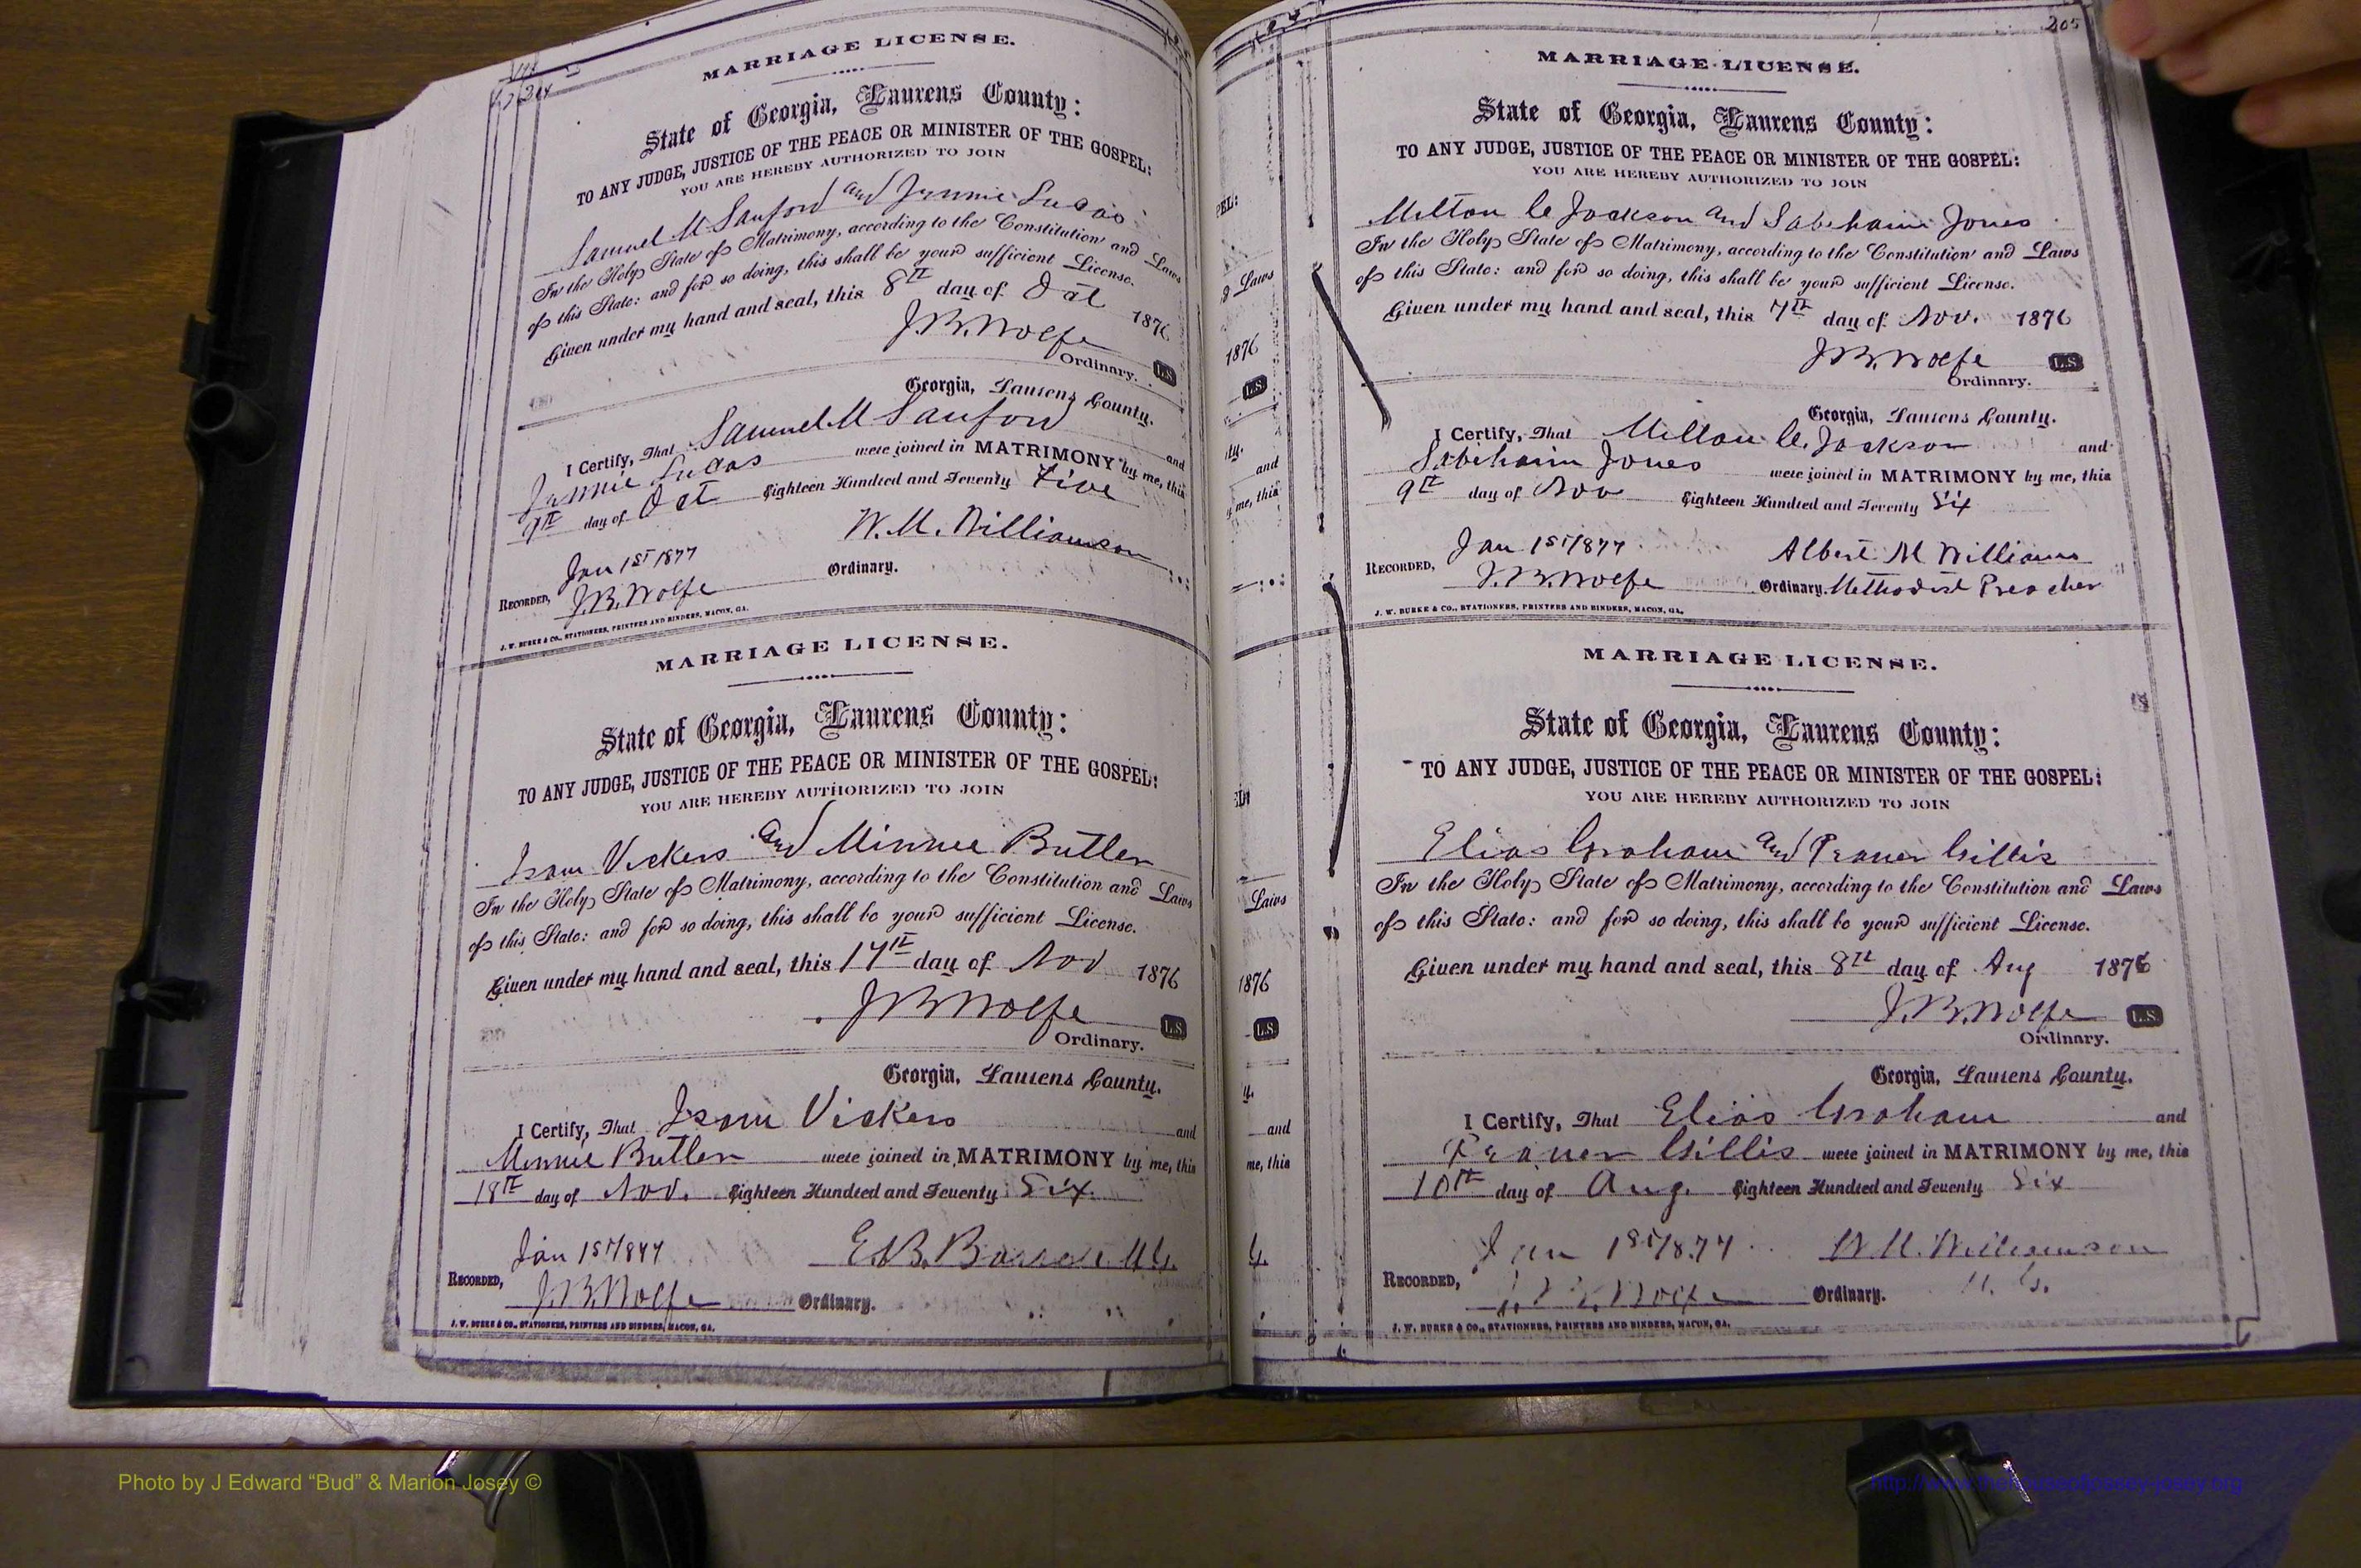 204
MARRIAGE LICENSE.
State of Georgia, Laurens County:
TO ANY JUDGE, JUSTICE OF THE PEACE OR MINISTER OF THE GOSPEL:
YOU ARE HEREBY AUTHORIZED TO JOIN
Samuel M Sanford and Jennie Lucas
In the Holy State of Matrimony, according to the Constitution and Laws
of this State: and for so doing, this shall be your sufficient License.
Given under my hand and seal, this 8th day of Oct 1876
J.B. Wolfe
Ordinary. L.S.
Georgia, Laurens County.
I Certify, That Samuel M Sanford and
Jennie Lucas were joined in MATRIMONY by me, this
day of Oct Eighteen Hundred and Seventy Five
W. M. Williamson
Jan 1st 1877
RECORDED, J.B. Wolfe Ordinary.
J. W. BURKE & CO., STATIONERS, PRINTERS AND BINDERS, MACON, GA.
MARRIAGE LICENSE.
State of Georgia, Laurens County:
TO ANY JUDGE, JUSTICE OF THE PEACE OR MINISTER OF THE GOSPEL:
YOU ARE HEREBY AUTHORIZED TO JOIN
Isam Vickers and Minnie Butler
In the Holy State of Matrimony, according to the Constitution and Laws
of this State: and for so doing, this shall be your sufficient License.
Given under my hand and seal, this 17th day of Nov 1876
J B Wolfe
Ordinary. L.S.
Georgia, Laurens County.
I Certify, That Isam Vickers and
Minnie Butler were joined in MATRIMONY by me, this
18th day of Nov. Eighteen Hundred and Seventy Six.
Jan 1st 1877 E.B. M G.
RECORDED, J.B. Wolfe Ordinary.
J. W. BURKE & CO., STATIONERS, PRINTERS AND BINDERS, MACON, GA.
PEL:
& Laws
1876
L.S.
ty.
and
y me, this
Laws
1876
L.S.
y.
and
me, this
G.
205
MARRIAGE LICENSE.
State of Georgia, Laurens County:
TO ANY JUDGE, JUSTICE OF THE PEACE OR MINISTER OF THE GOSPEL:
YOU ARE HEREBY AUTHORIZED TO JOIN
Milton C Jackson and Jones
In the Holy State of Matrimony, according to the Constitution and Laws
of this State: and for so doing, this shall be your sufficient License.
Given under my hand and seal, this 7th day of Nov. 1876
J.B. Wolfe L.S.
Ordinary.
Georgia, Laurens County.
I Certify, That Milton C. Jackson and
Jones were joined in MATRIMONY by me, this
9th day of Nov Eighteen Hundred and Seventy Six
Jan 1st 1877 Albert M Williams
RECORDED, J.B. Wolfe Ordinary. Methodist Preacher
J. W. BURKE & CO., STATIONERS, PRINTERS AND BINDERS, MACON, GA.
MARRIAGE LICENSE.
State of Georgia, Laurens County:
TO ANY JUDGE, JUSTICE OF THE PEACE OR MINISTER OF THE GOSPEL:
YOU ARE HEREBY AUTHORIZED TO JOIN
Elias Graham and Gillis
In the Holy State of Matrimony, according to the Constitution and Laws
of this State: and for so doing, this shall be your sufficient License.
Given under my hand and seal, this 8th day of Aug 1876
J.B. Wolfe L.S.
Ordinary.
Georgia, Laurens County.
I Certify, That Elias Graham and
Gillis were joined in MATRIMONY by me, this
10th day of Aug. Eighteen Hundred and Seventy Six
Jan 1st 1877 W M. Williamson
RECORDED, J.B. Wolfe Ordinary. M. G.
J. W. BURKE & CO., STATIONERS, PRINTERS AND BINDERS, MACON, GA.
Photo by J Edward “Bud” & Marion Josey ©
http://www.thehouseofjossey-josey.org